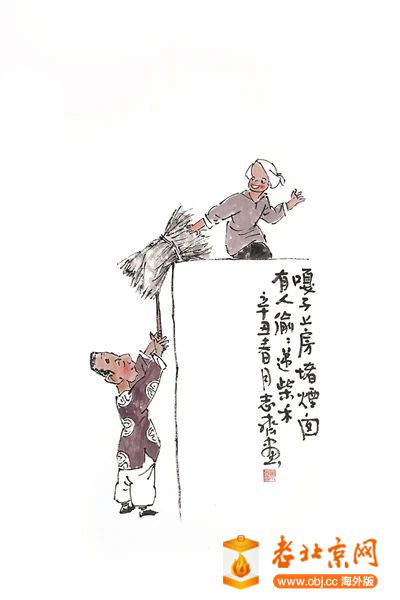 嘎子上房堵煙囱
有人偷:递柴禾
辛丑春月志齐画
老北京网
www.obj.cc 海外版